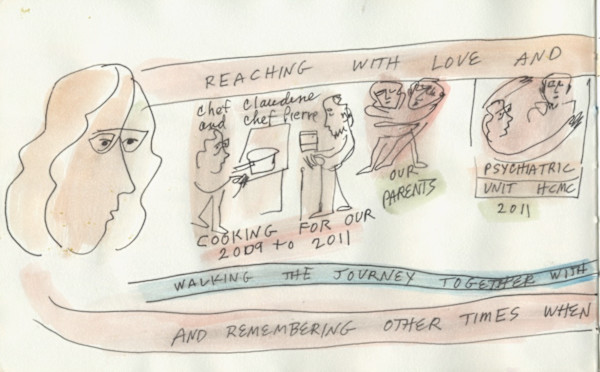 REACHING WITH LOVE AND
Chef Claudine
and Chef Pierre
COOKING FOR OUR
2009 to 2011
OUR
PARENTS
PSYCHIATRIC
UNIT HCMC
2011
WALKING THE JOURNEY TOGETHER WITH
AND REMEMBERING OTHER TIMES WHEN